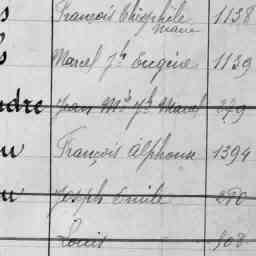 s François Théophile 1138
Marie
s Marcel Jh Eugène 1139
ndre Jean Mie Jh Marcel 299
u François Alphonse 1394
u Joseph Emile 280
Louis 908